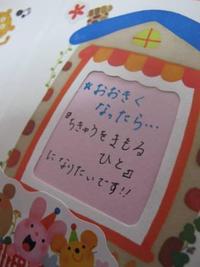 *おおきく
なったら…
『ちきゅうをまもる
ひと』
になりたいです!!